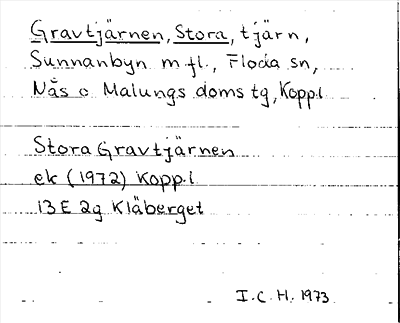 Gravtjärnen, Stora, tjärn,
Sunnanbyn m fl., Floda sn,
Nås o Malungs doms tg, Kopp.l
Stora Gravtjärnen
ek (1972) Kopp.l.
13E 2g Kläberget
I.C.H. 1973